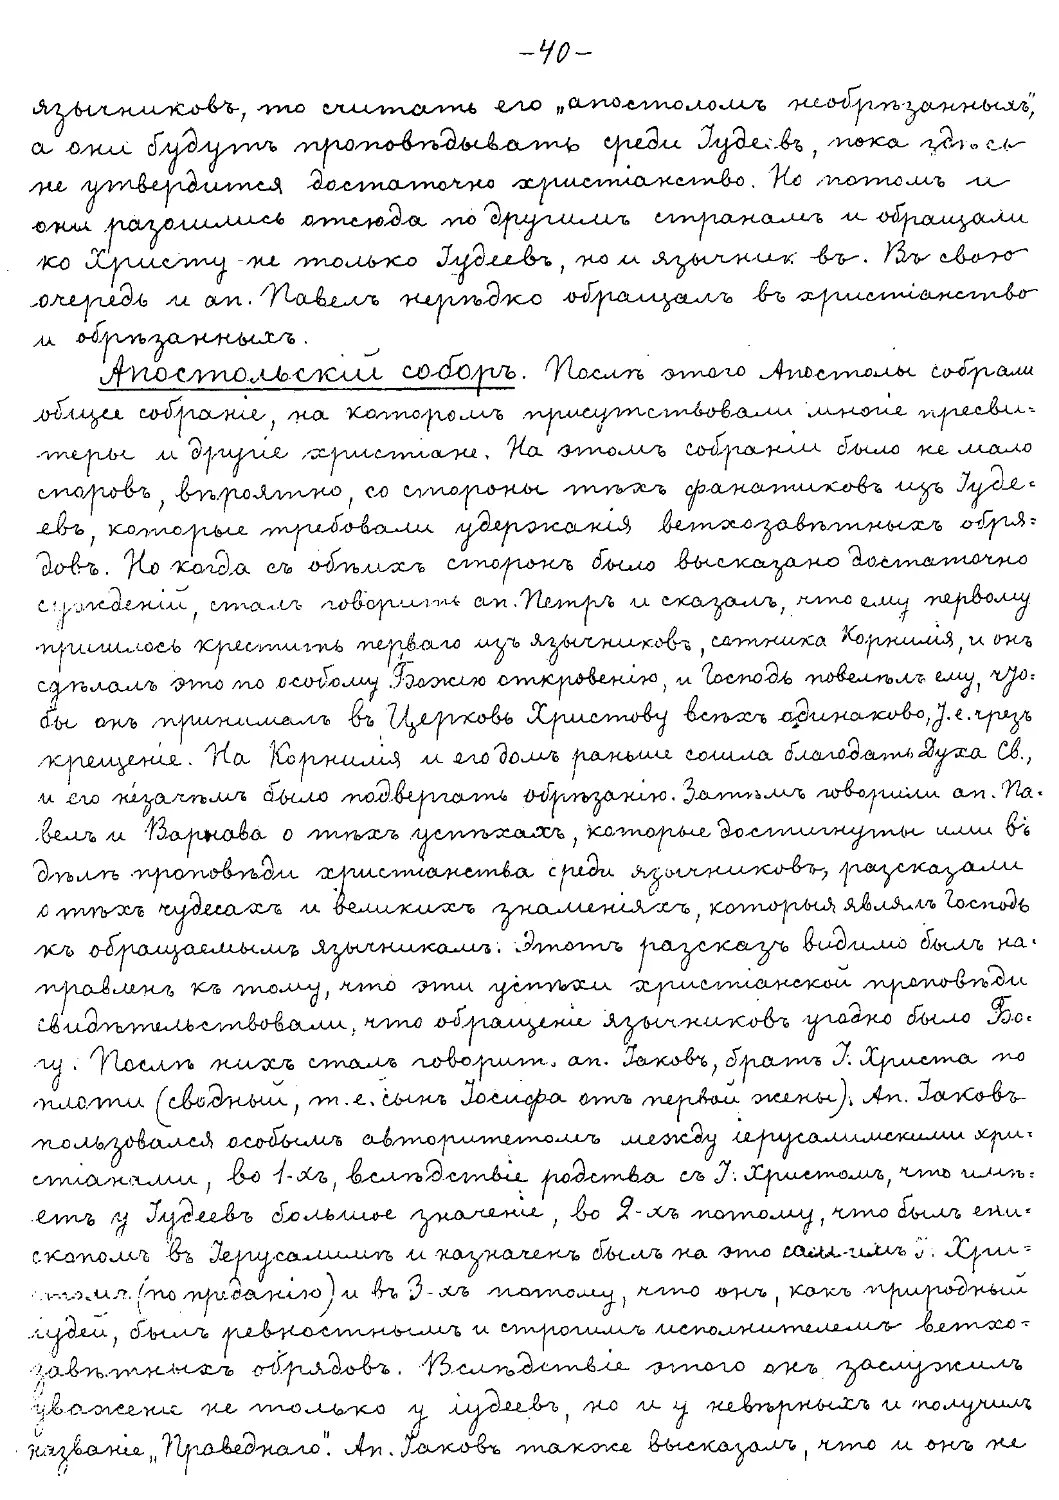 -40-
язычниковъ, то считать его „апостоломъ необрѣзанныхъ",
а они будутъ проповѣдывать среди Іудеевъ, пока здѣсь
не утвердится достаточно христіанство. Но потомъ и
они разошлись отсюда по другимъ странамъ и обращали
ко Христу не только Іудеевъ, но и язычник въ. Въ свою
очередь и ап. Павелъ нерѣдко обращалъ въ христіанство
и обрѣзанныхъ.
Апостольскій соборъ. Послѣ этого Апостолы собрали
общее собраніе, на которомъ присутствовали многіе пресви=
теры и другіе христіане. На этомъ собраніи было не мало
споровъ, вѣроятно, со стороны тѣхъ фанатиковъ изъ Іуде=
евъ, которые требовали удержанія ветхозавѣтныхъ обря=
довъ. Но когда съ обѣихъ сторонъ было высказано достаточно
сужденій, сталъ говорить ап. Петръ и сказалъ, что ему первому
пришлось крестить перваго изъ язычниковъ, сотника Корнилія, и онъ
сдѣлалъ это по особому Божію откровенію, и Господь повелѣлъ ему, что=
бы онъ принималъ въ Церковь Христову всѣхъ одинаково, т.е. чрезъ
крещеніе. На Корнилія и его домъ раньше сошла благодать Духа Св.,
и его незачѣмъ было подвергать обрѣзанію. Затѣмъ говорили ап. Па=
велъ и Варнава о тѣхъ успѣхахъ, которые достигнуты ими въ
дѣлѣ проповѣди христіанства среди язычниковъ, разсказали
о тѣхъ чудесахъ и великихъ знаменіяхъ, которыя являлъ Господь
къ обращаемымъ язычникамъ. Этотъ разсказъ видимо былъ на=
правленъ къ тому, что эти успѣхи христіанской проповѣди
свидѣтельствовали, что обращеніе язычниковъ угодно было Бо=
гу. Послѣ нихъ сталъ говорит. ап. Іаковъ, братъ І. Христа по
плоти (сводный, т.е. сынъ Іосифа отъ первой жены). Ап. Іаковъ
пользовался особымъ авторитетомъ между іерусалимскими хри=
стіанами, во 1-хъ, вслѣдствіе родства съ І. Христомъ, что имѣ=
етъ у Іудеевъ большое значеніе, во 2-хъ потому, что былъ епи=
скопомъ въ Іерусалимѣ и назначенъ былъ на это самимъ І. Хри=
стомъ (по преданію) и въ 3-хъ потому, что онъ, какъ природный
іудей, былъ ревностнымъ и строгимъ исполнителемъ ветхо=
завѣтныхъ обрядовъ. Вслѣдствіе этого онъ заслужилъ
уваженіе не только у іудеевъ, но и у невѣрныхъ и получилъ
названіе „Праведнаго". Ап. Іаковъ также высказалъ, что и онъ не